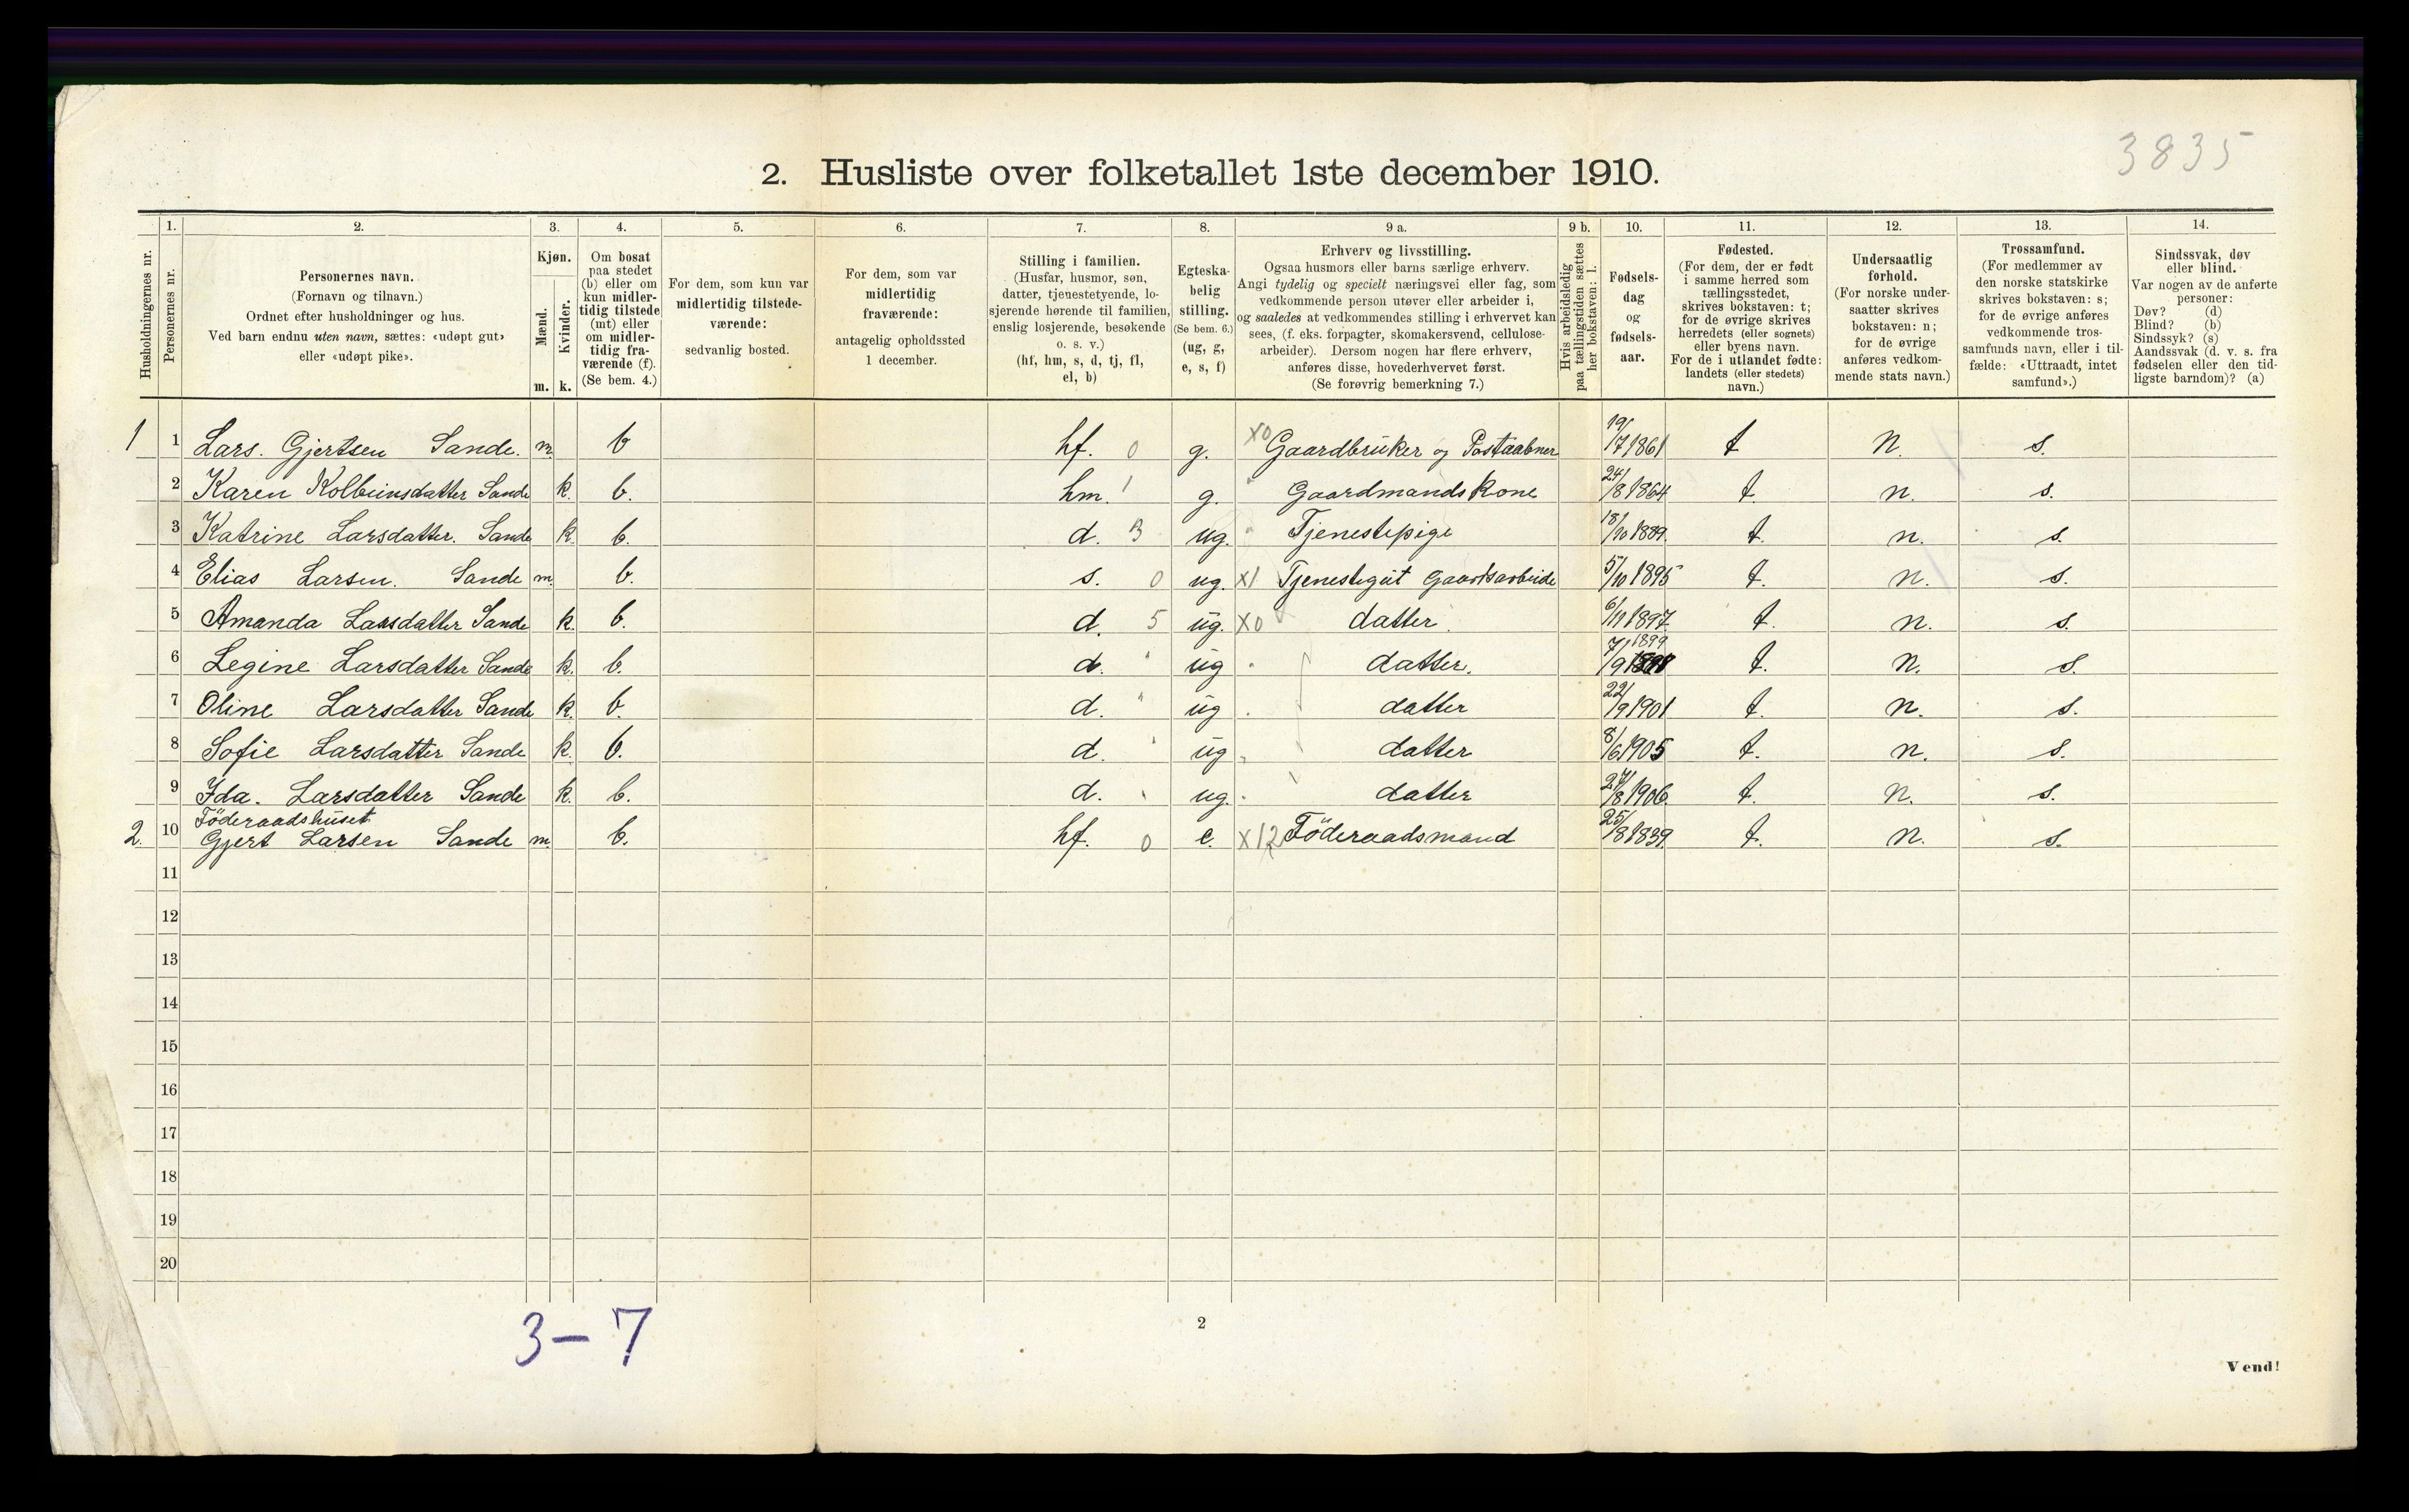 3835
2. Husliste over folketallet 1ste december 1910.
Husholdningernes nr.
1.
Personernes nr.
2.
Personernes navn.
(Fornavn og tilnavn.)
Ordnet efter husholdninger og hus.
Ved barn endnu uten navn, sættes: «udøpt gut»
eller «udøpt pike».
3.
Kjøn.
Mænd.
Kvinder.
m. k.
4.
Om bosat
paa stedet
(b) eller om
kun midler-
tidig tilstede
(mt) eller
om midler-
tidig fra-
værende (f).
(Se bem. 4.)
5.
For dem, som kun var
midlertidig tilstede-
værende:
sedvanlig bosted.
6.
For dem, som var
midlertidig
fraværende:
antagelig opholdssted
1 december.
7.
Stilling i familien.
(Husfar, husmor, søn,
datter, tjenestetyende, lo-
sjerende hørende til familien,
enslig losjerende, besøkende
o. s. v.)
(hf, hm, s, d, tj, fl,
el, b)
8.
Egteska-
belig
stilling.
(Se bem. 6.)
(ug, g,
e, s, f)
9 a.
Erhverv og livsstilling.
Ogsaa husmors eller barns særlige erhverv.
Angi tydelig og specielt næringsvei eller fag, som
vedkommende person utøver eller arbeider i,
og saaledes at vedkommendes stilling i erhvervet kan
sees, (f. eks. forpagter, skomakersvend, cellulose-
arbeider). Dersom nogen har flere erhverv,
anføres disse, hovederhvervet først.
(Se forøvrig bemerkning 7.)
9 b.
Hvis arbeidsledig
paa tællingstiden sættes
her bokstaven: l.
10.
Fødsels-
dag
og
fødsels-
aar.
11.
Fødested.
(For dem, der er født
i samme herred som
tællingsstedet,
skrives bokstaven: t;
for de øvrige skrives
herredets (eller sognets)
eller byens navn.
For de i utlandet fødte:
landets (eller stedets)
navn.)
12.
Undersaatlig
forhold.
(For norske under-
saatter skrives
bokstaven: n;
for de øvrige
anføres vedkom-
mende stats navn.)
13.
Trossamfund.
(For medlemmer av
den norske statskirke
skrives bokstaven: s;
for de øvrige anføres
vedkommende tros-
samfunds navn, eller i til-
fælde: «Uttraadt, intet
samfund».)
14.
Sindssvak, døv
eller blind.
Var nogen av de anførte
personer:
Døv? (d)
Blind? (b)
Sindssyk? (s)
Aandssvak (d. v. s. fra
fødselen eller den tid-
ligste barndom)? (a)
1 1 Lars. Gjertsen Sande. m. b hf. 0 g. X0 Gaardbruker og Postaabner 19/7 1861 t n. s.
2 Karen Kolbeinsdatter Sande k. b. hm. 1 g. " Gaardmandskone 24/8 1864 t. n. s.
3 Katrine Larsdatter. Sande k. b. d. 3 ug. " Tjenestepige 18/10 1889. t. n. s.
4 Elias Larsen. Sande m. b. s. 0 ug. X1 Tjenestegut Gaardsarbeide 5/10 1895 t. n. s.
5 Amanda Larsdatter Sande k. b. d. 5 ug. X0 datter. 6/11 1897. t. n. s.
6 Legine Larsdatter Sande k. b. d. " ug " datter. 7/9 1899 t. n. s.
7 Oline Larsdatter Sande k. b. d. " ug . datter 22/9 1901 t. n. s.
8 Sofie Larsdatter Sande k. b. d. " ug " datter 8/6 1905 t. n. s.
9 Ida. Larsdatter Sande k. b. d. " ug. . datter 27/8 1906. t. n. s.
Föderaadshuset
2. 10 Gjert Larsen Sande m. b. hf. 0 e. X12 Föderaadsmand 25/8 1839. t. n. s.
11
12
13
14
15
16
17
18
19
20
3-7
2
Vend!